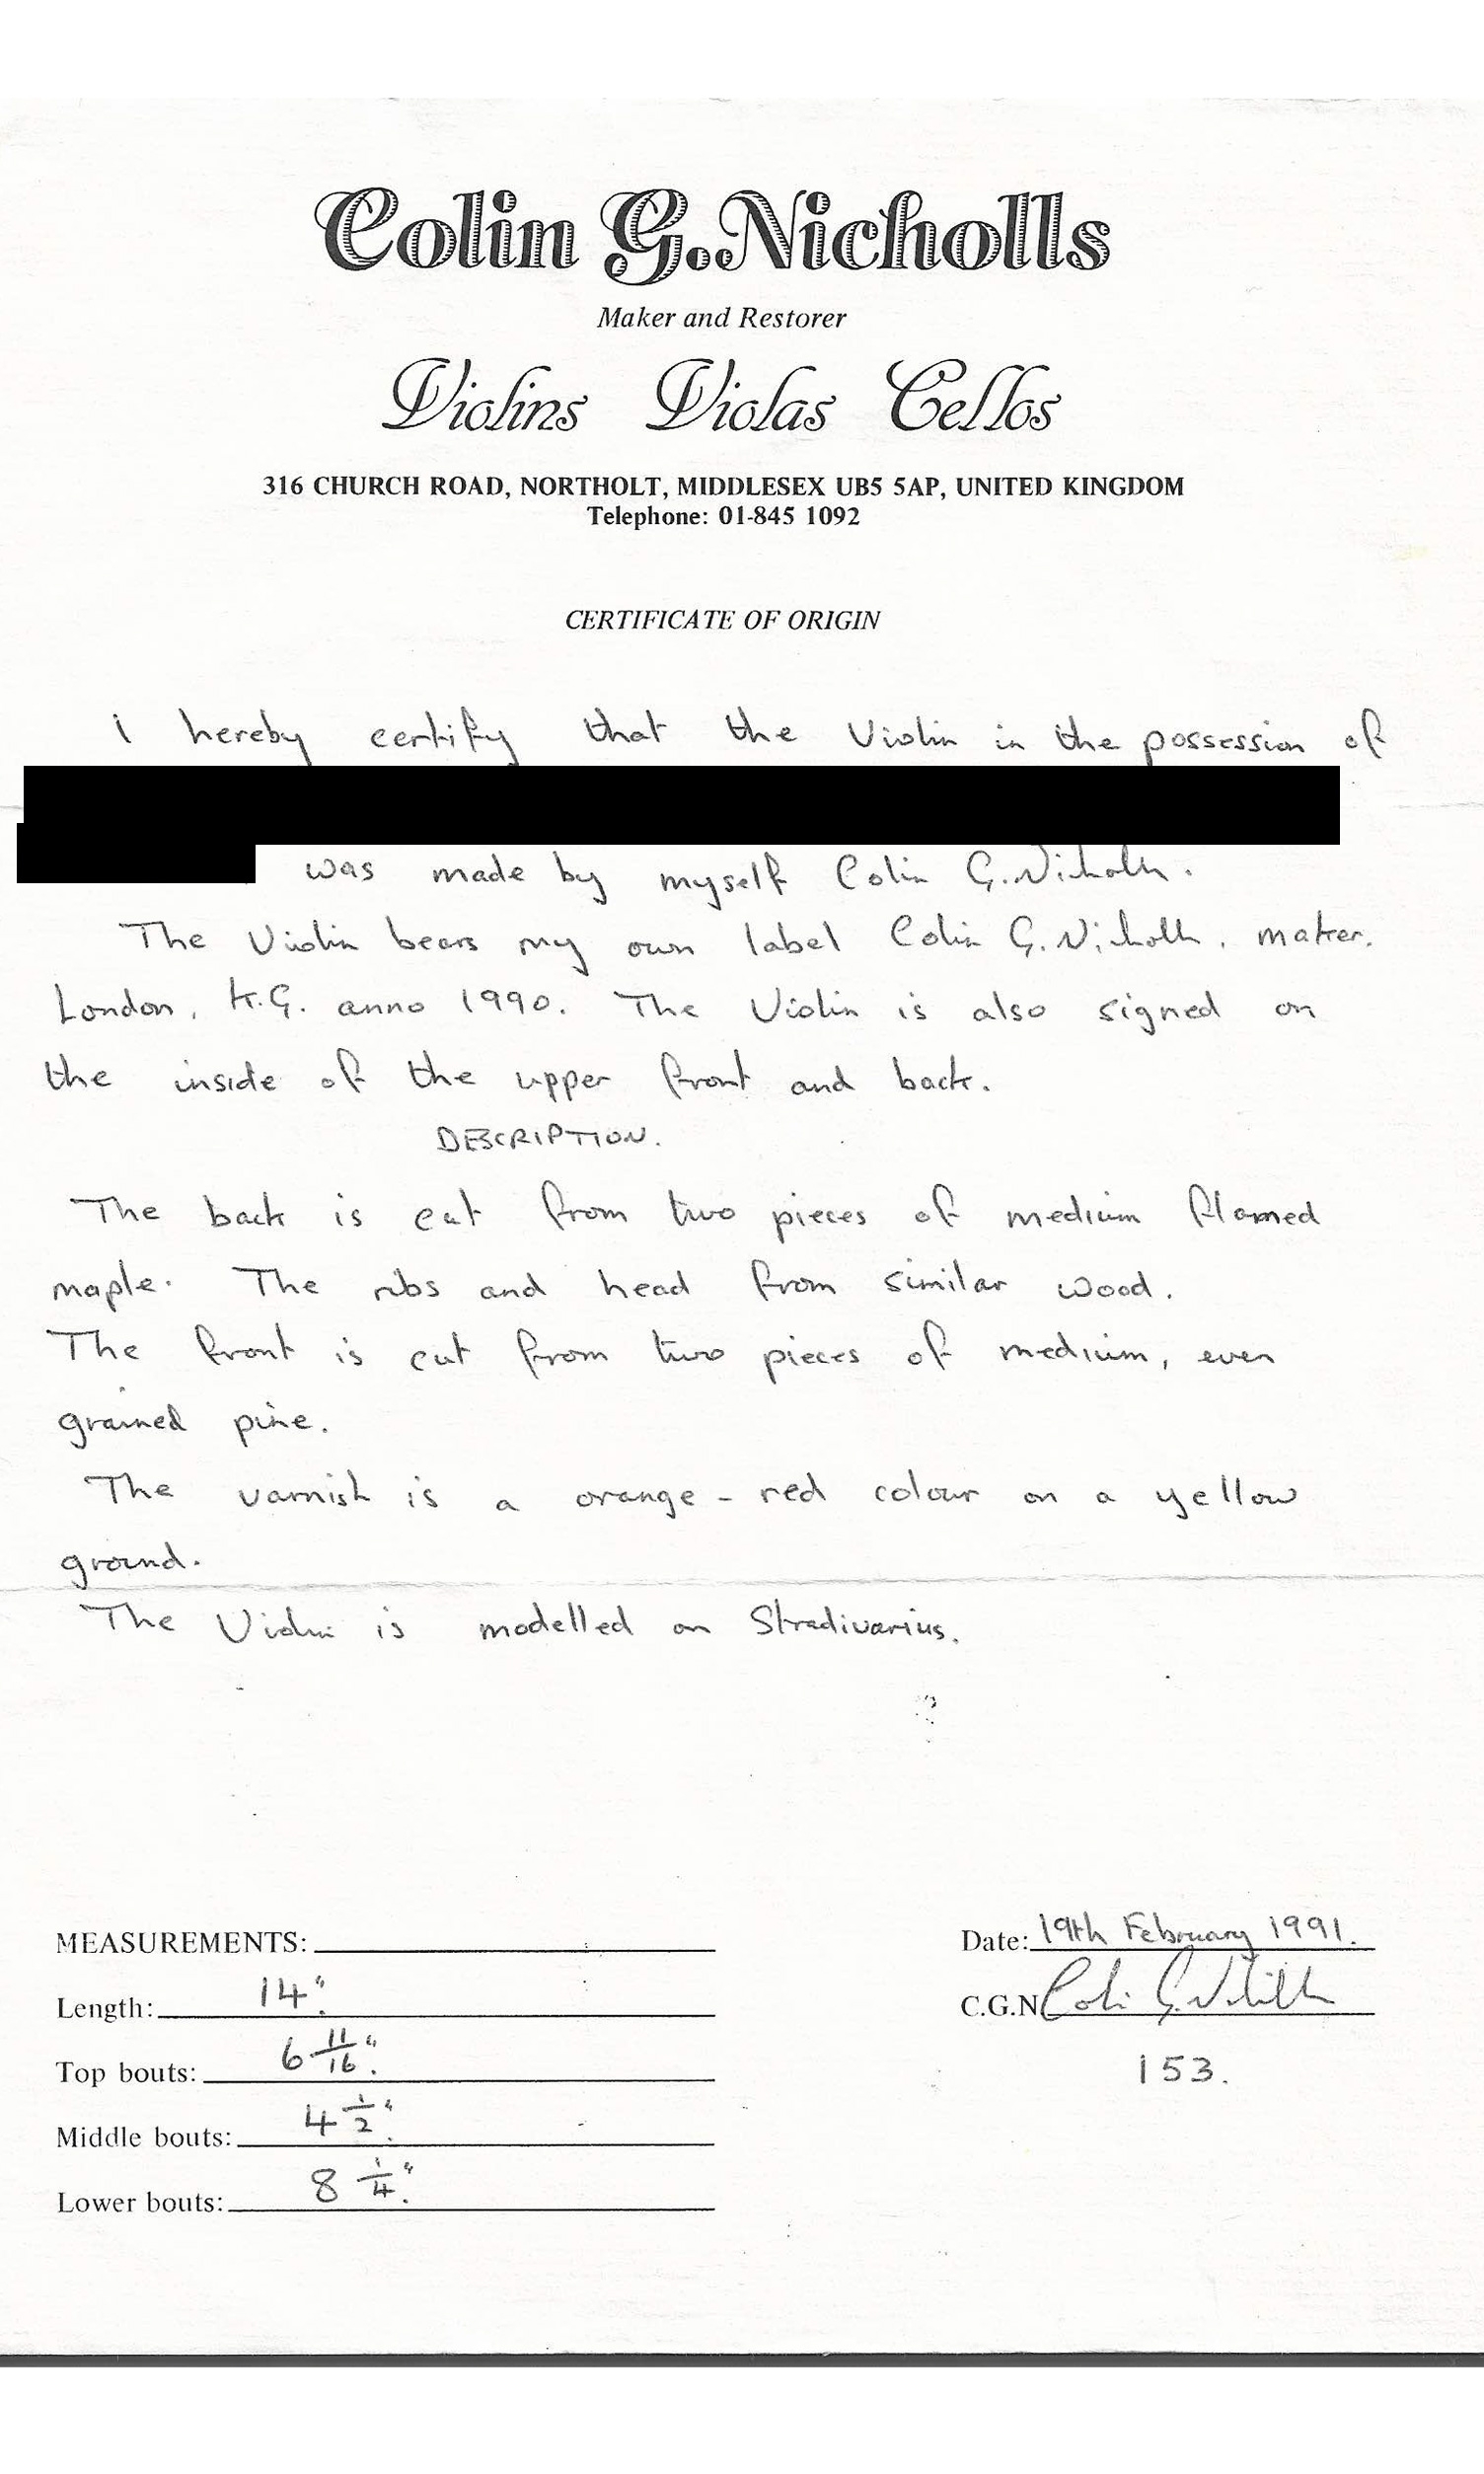 Colin G. Nicholls
Maker and Restorer
Violins Violas Cellos
316 CHURCH ROAD, NORTHOLT, MIDDLESEX UB5 5AP, UNITED KINGDOM
Telephone: 01-845 1092
CERTIFICATE OF ORIGIN
I hereby certify that the Violin in the possession of
was made by myself Colin G. Nicholls.
The Violin bears my own label Colin G. Nicholls, maker.
London, K.G. anno 1990. The Violin is also signed on
the inside of the upper front and back.
DESCRIPTION.
The back is cut from two pieces of medium flamed
maple. The ribs and head from similar wood.
The front is cut from two pieces of medium, even
grained pine.
The varnish is a orange-red colour on a yellow
ground.
The Violin is modelled on Stradivarius.
MEASUREMENTS:
Length: 14".
Top bouts: 6 11/16".
Middle bouts: 4 1/2".
Lower bouts: 8 1/4".
Date: 19th February 1991.
C.G.N Colin G. Nicholls
153.